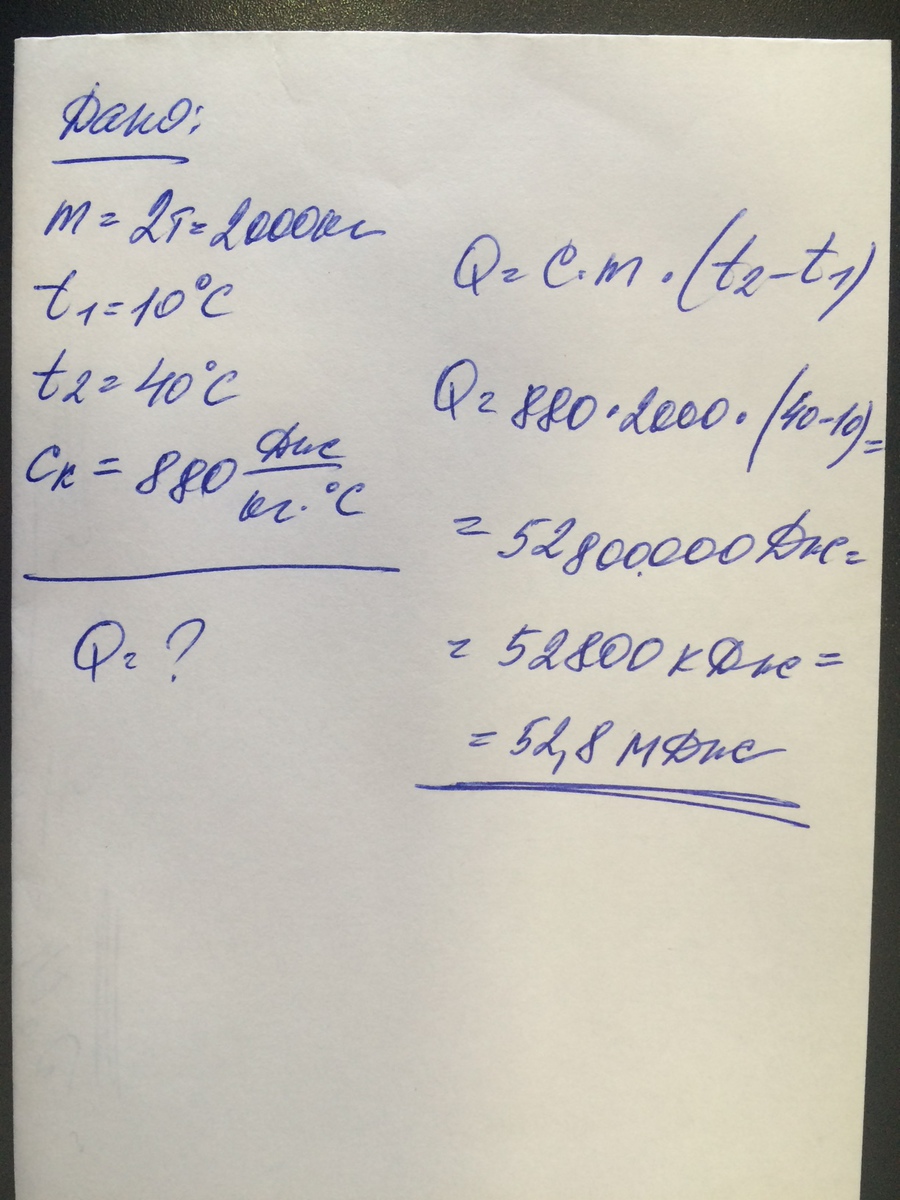 Дано:
m = 2т = 2000кг
t₁ = 10°C
t₂ = 40°C
Cк = 880 Дж/кг·°C
Q = ?
Q = C·m·(t₂-t₁)
Q = 880·2000·(40-10) =
= 52800000 Дж =
= 52800 кДж =
= 52,8 МДж